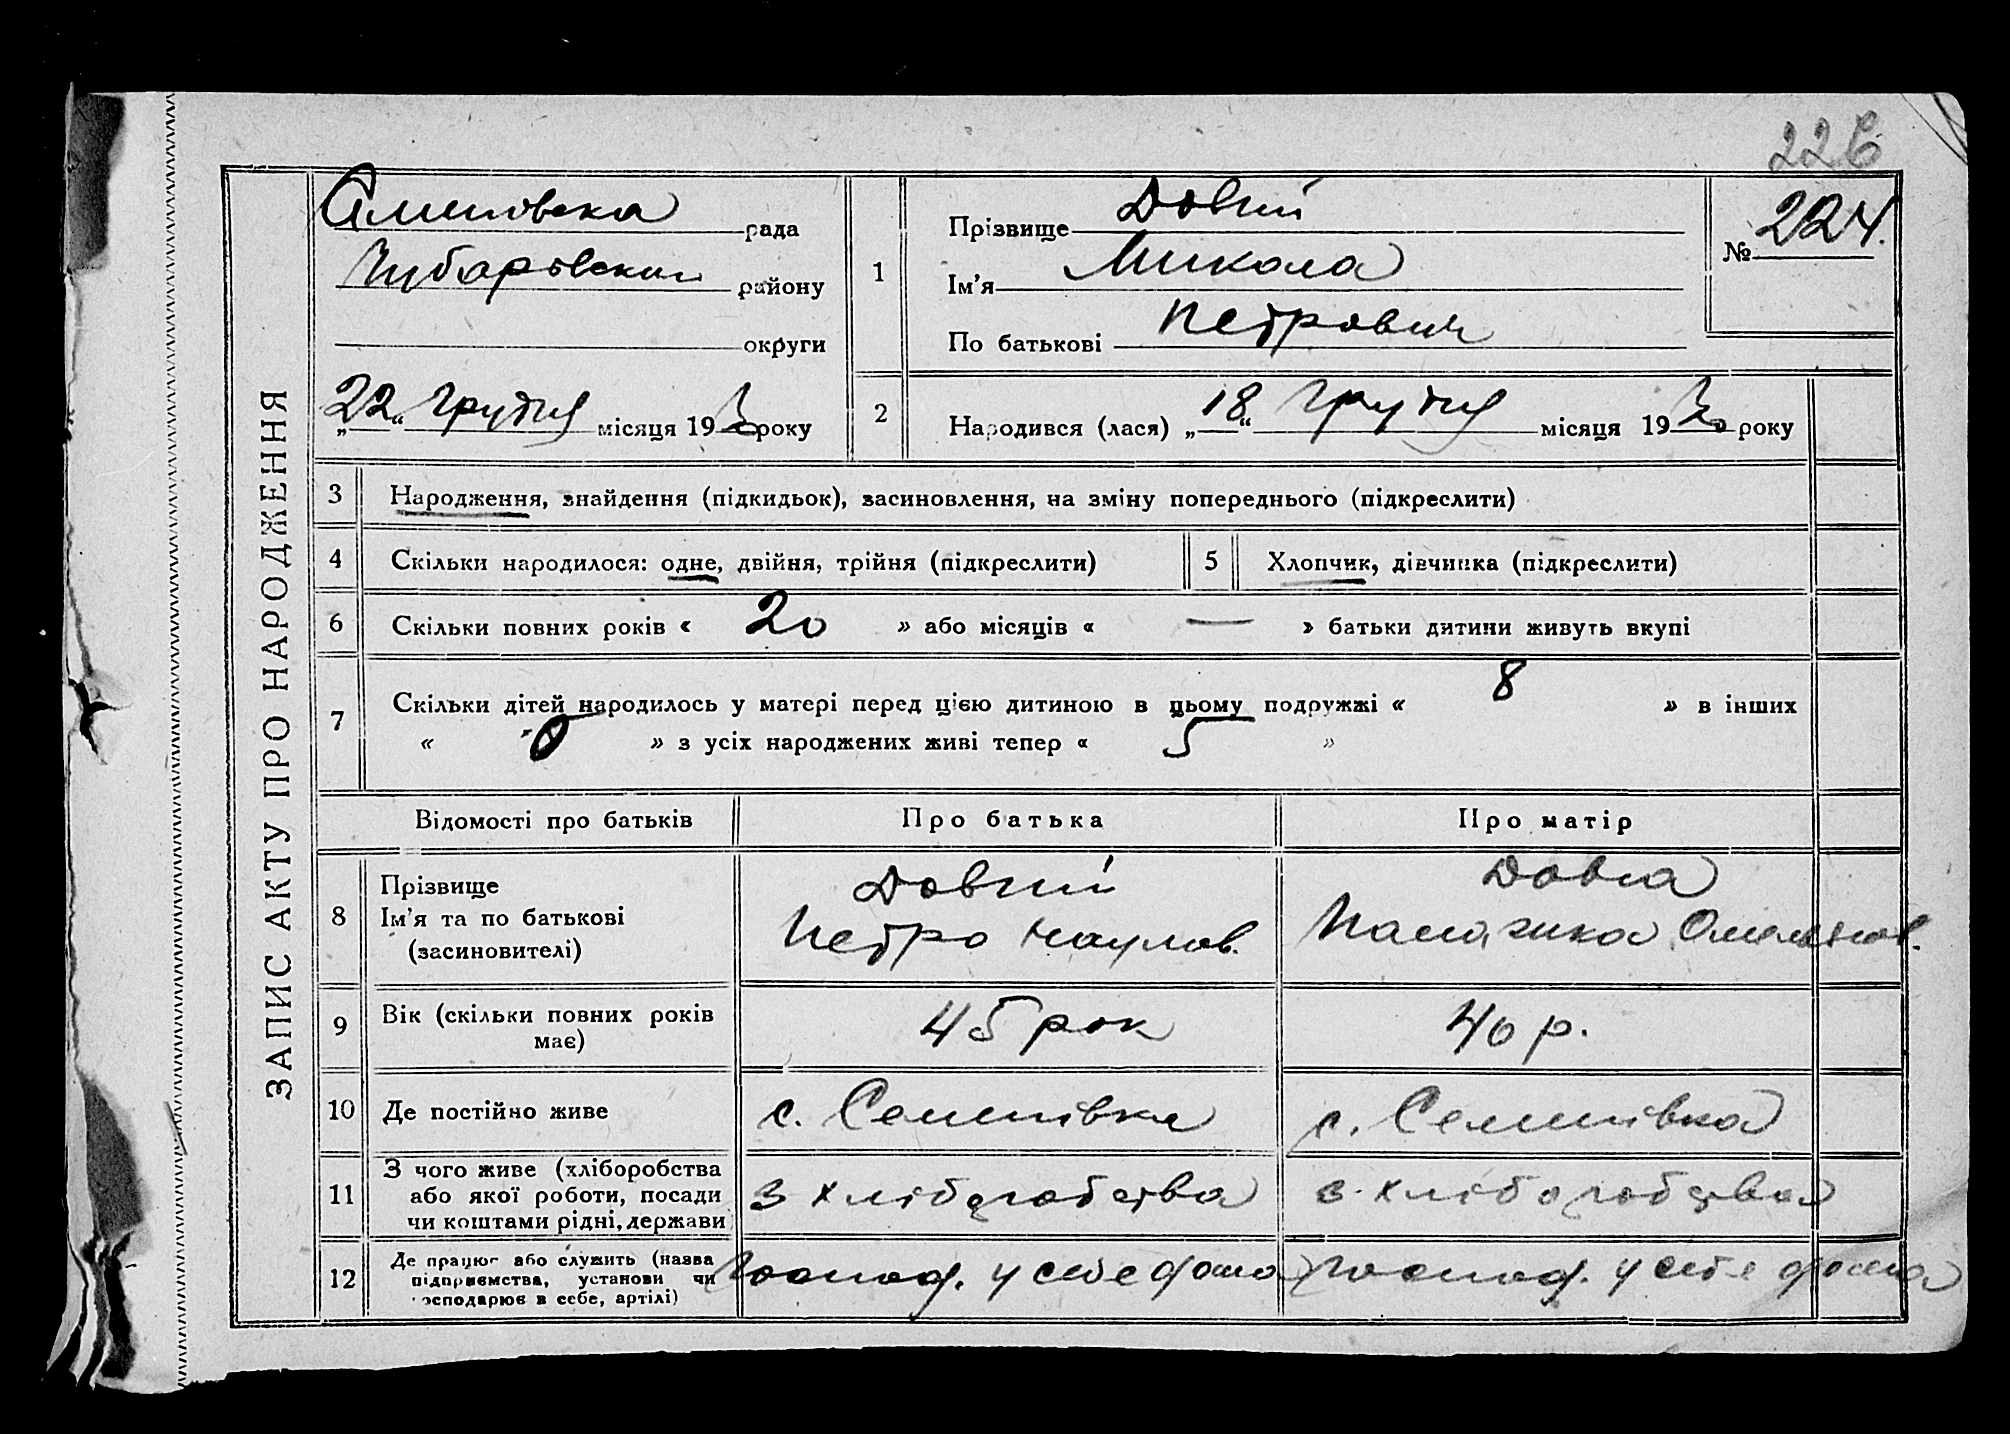 226
ЗАПИС АКТУ ПРО НАРОДЖЕННЯ
Семенівска рада
Чубаровский району
округи
„22“ грудня місяця 1930 року
1
Прізвище Довгий
Ім'я Микола
По батькові Петрович
№ 224.
2 Народився (лася) „18“ грудня місяця 1930 року
3 Народження, знайдення (підкидьок), засиновлення, на зміну попереднього (підкреслити)
4 Скільки народилося: одне, двійня, трійня (підкреслити) 5 Хлопчик, дівчинка (підкреслити)
6 Скільки повних років « 20 » або місяців « — » батьки дитини живуть вкупі
7 Скільки дітей народилось у матері перед цією дитиною в цьому подружжі « 8 » в інших
« 0 » з усіх народжених живі тепер « 5 »
Відомості про батьків Про батька Про матір
8 Прізвище Довгий Довга
Ім'я та по батькові Петро Наумов. Омелянов.
(засиновителі)
9 Вік (скільки повних років 45 рок 40 р.
має)
10 Де постійно живе с. Семенівка с. Семенівка
11 З чого живе (хліборобства з хліборобства з хліборобства
або якої роботи, посади
чи коштами рідні, держави
12 Де працює або служить (назва господ. у себе дома господ. у себе дома
підприємства, установи чи
господарює в себе, артілі)